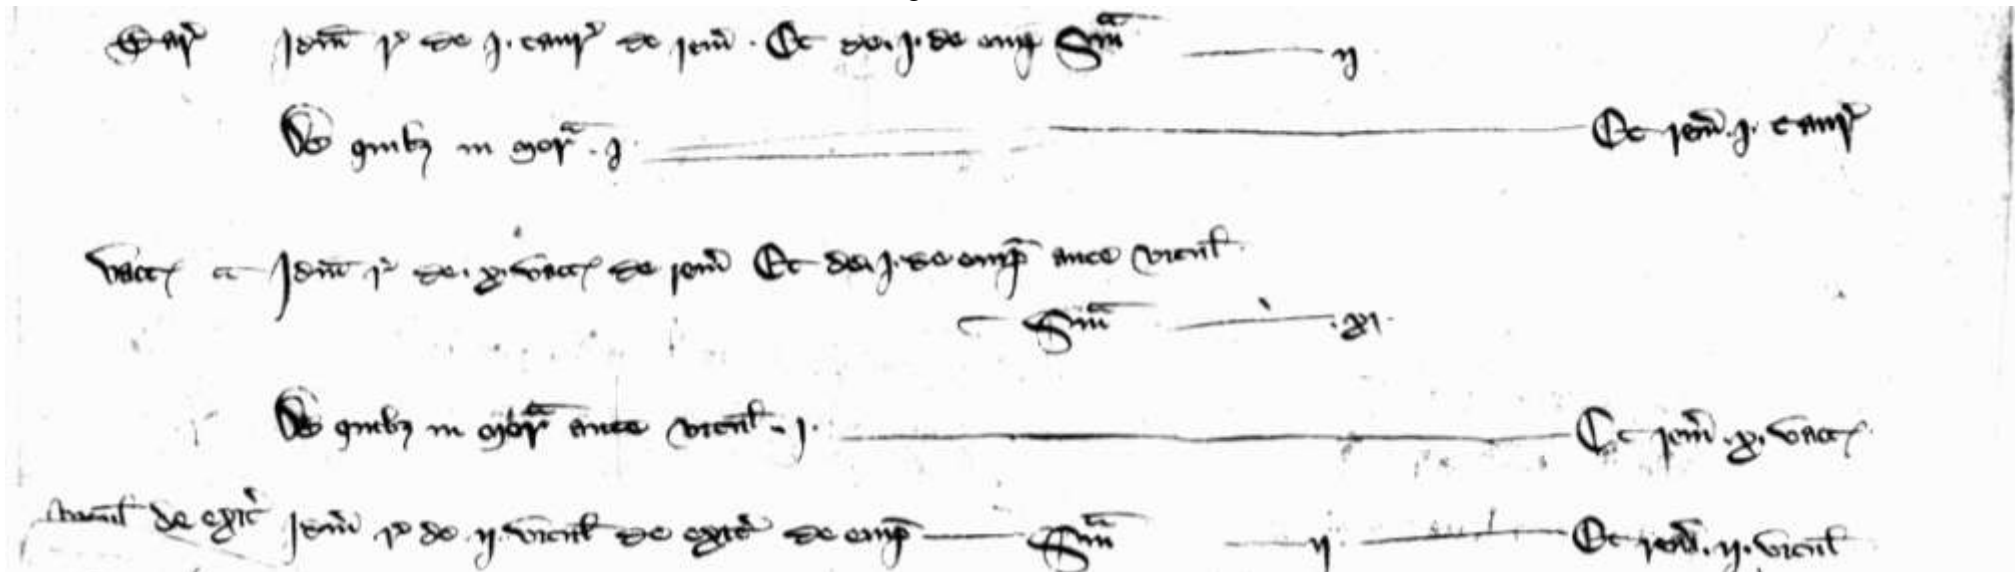 Idem r' de j. taur' de rem' . Et de. j. de emp Sma ij
De quibz in mor' . j. Et rem'. j. taur'
Vacc' Idem r' de. x. vacc' de rem' Et de. j. de emp' ante vitul'.
Sma .xj.
De quibz in mor' ante vitul' . j. Et rem'. x. vacc'.
vitul' de exit' Idem r' de ij. vitul' de exit' de emp' Sma ij Et rem'. ij. vitul'